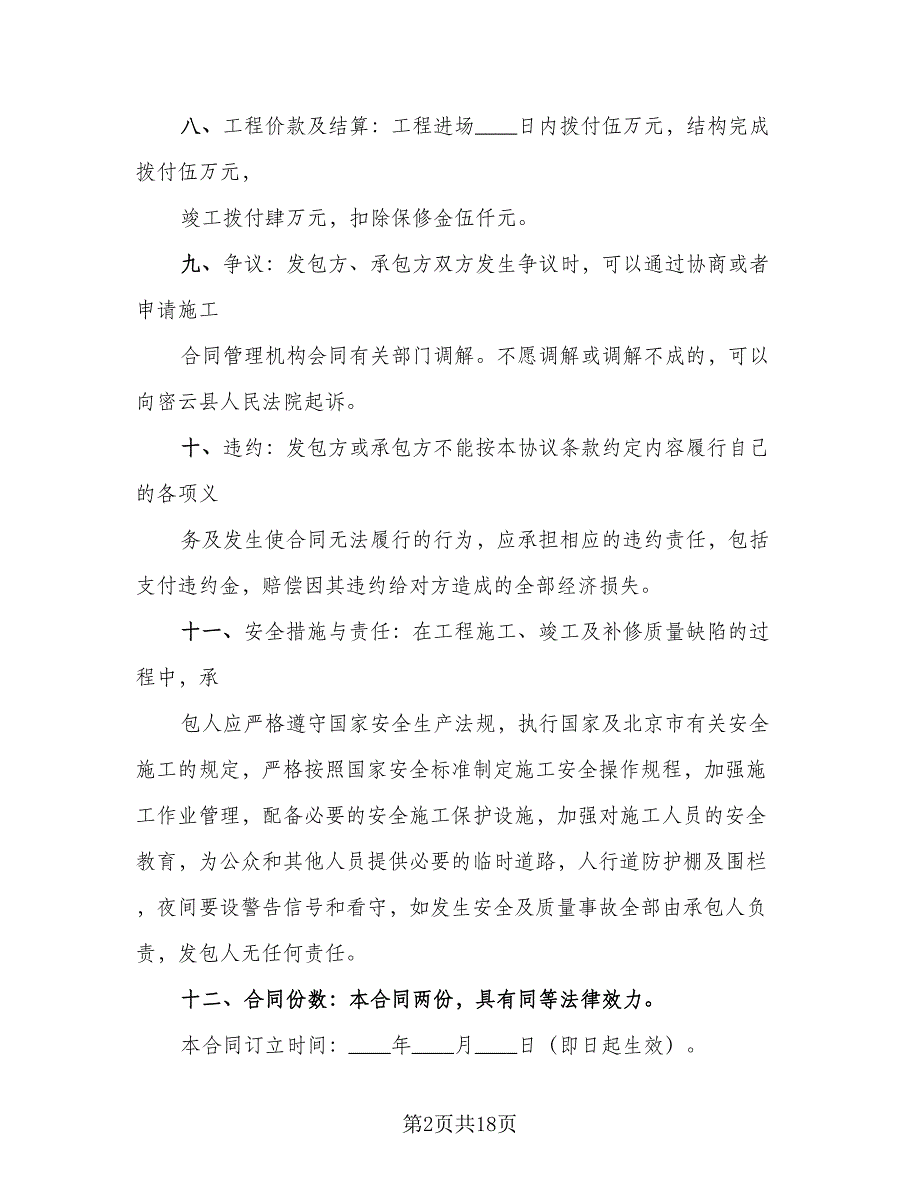 八、工程价款及结算：工程进场____日内拨付伍万元，结构完成
拨付伍万元，
竣工拨付肆万元，扣除保修金伍仟元。
九、争议：发包方、承包方双方发生争议时，可以通过协商或者
申请施工
合同管理机构会同有关部门调解。不愿调解或调解不成的，可以
向密云县人民法院起诉。
十、违约：发包方或承包方不能按本协议条款约定内容履行自己
的各项义
务及发生使合同无法履行的行为，应承担相应的违约责任，包括
支付违约金，赔偿因其违约给对方造成的全部经济损失。
十一、安全措施与责任：在工程施工、竣工及补修质量缺陷的过
程中，承
包人应严格遵守国家安全生产法规，执行国家及北京市有关安全
施工的规定，严格按照国家安全标准制定施工安全操作规程，加强施
工作业管理，配备必要的安全施工保护设施，加强对施工人员的安全
教育，为公众和其他人员提供必要的临时道路，人行道防护棚及围栏
，夜间要设警告信号和看守，如发生安全及质量事故全部由承包人负
责，发包人无任何责任。
十二、合同份数：本合同两份，具有同等法律效力。
本合同订立时间：____年____月____日（即日起生效）。
第2页共18页